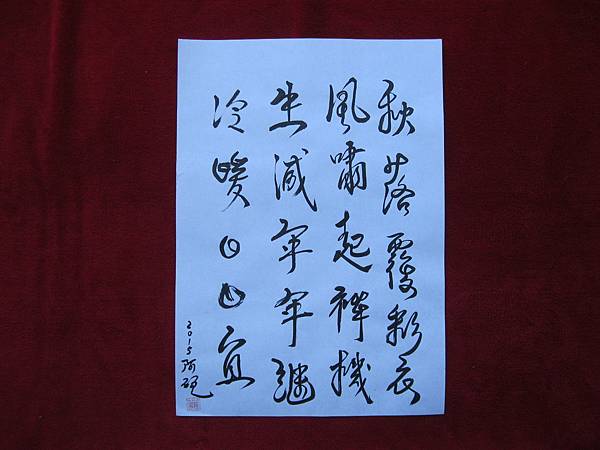 秋落覆彩衣
風嘯起禪機
生滅年年繼
冷暖日日宜
2015阿硯